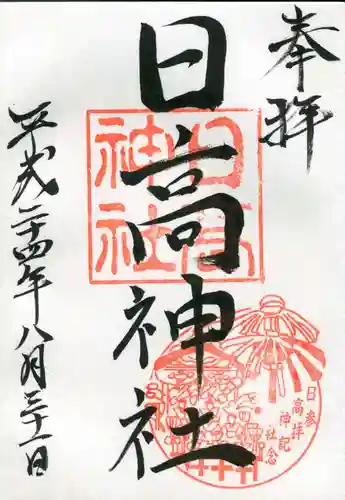 奉拝
日高神社
平成二十四年八月三十一日
日高神社
参拝記念